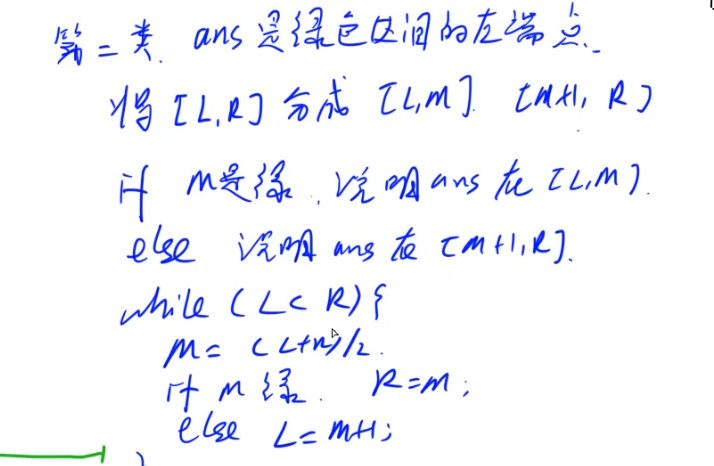 第二类. ans是绿色区间的左端点.
将[L,R]分成[L,M]. [M+1, R]
if M是绿, 说明ans在[L,M].
else 说明ans在[M+1,R].
while (L<R){
M= (L+R)/2.
if M绿. R=M;
else L=M+1;
}